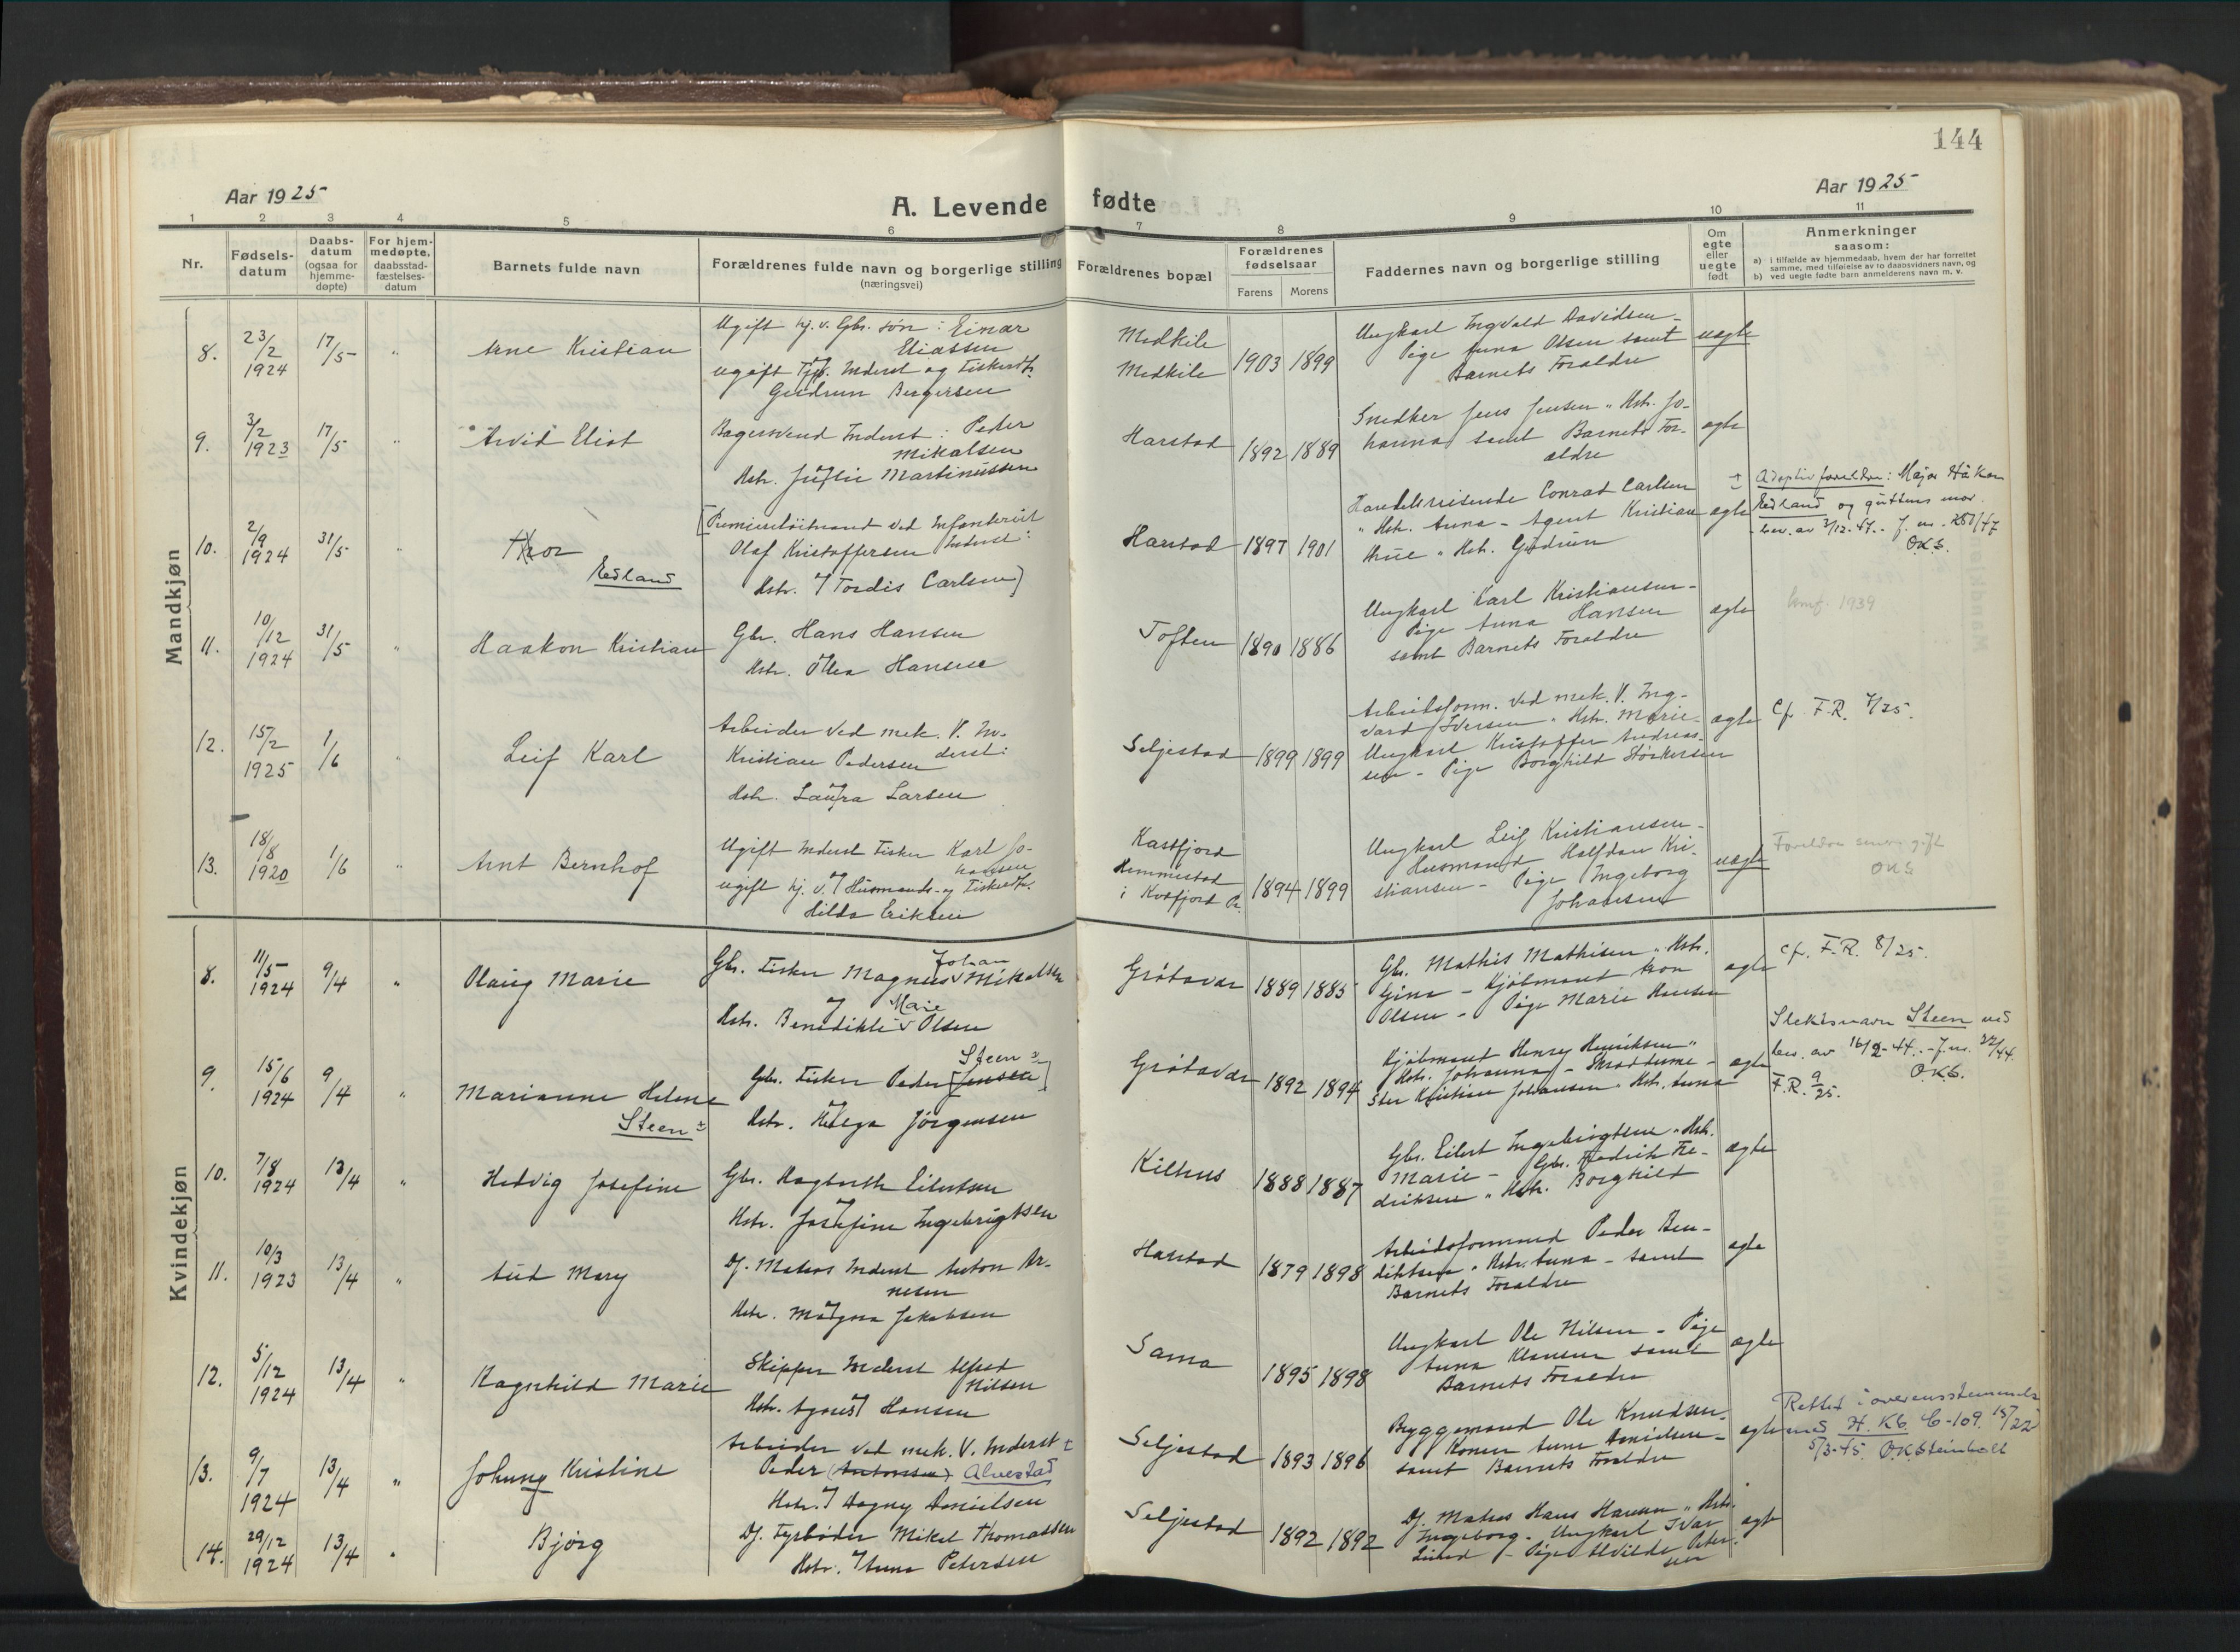 144
Aar 1925
A. Levende fødte
Aar 1925
1 2 3 4 5 6 7 8 9 10 11
Nr.
Fødsels-
datum
Daabs-
datum
(ogsaa for
hjemme-
døpte)
For hjem-
medøpte,
daabsstad-
fæstelses-
datum
Barnets fulde navn
Forældrenes fulde navn og borgerlige stilling
(næringsvei)
Forældrenes bopæl
Forældrenes
fødselsaar
Farens Morens
Faddernes navn og borgerlige stilling
Om
egte
eller
uegte
født
Anmerkninger
saasom:
a) i tilfælde av hjemmedaab, hvem der har forrettet
samme, med tilføielse av to daabsvidners navn, og
b) ved uegte fødte barn anmelderens navn m. v.
Mandkjøn
8. 23/2 1924 17/5 " Arne Kristian
Ugift hj. v. Gbr. søn: Einar
Eliassen
ugift Tj. Inderst og Fiskerdtr.
Gudrun Bergersen
Medkile
Medkile
1903 1899
Ungkarl Ingvald Davidsen -
Pige Anna Olsen samt
Barnets Forældre
uægte
9. 3/2 1923 17/5 " Arvid Eliot
Bagersvend Inderst: Peder
Mikalsen
Hstr. Julie Martinussen
Harstad
1892 1889
Snedker Jens Jensen " Hstr. Jo-
hanna samt Barnets For-
ældre
ægte
10. 2/9 1924 31/5 " Thor
Redland
[Premierløitnand ved Infanteriet
Olaf Kristoffersen Inderst:
Hstr. Tordis Carlsen]
Harstad
1897 1901
Handelsreisende Conrad Carlsen
" Hstr. Anna - Agent Kristian
Hstr. Gudrun
ægte
± Adoptivforeldre: Major Håkon
Redland og guttens mor.
bev. av 3/12-47.
OKS.
11. 10/12 1924 31/5 " Haakon Kristian
Gbr. Hans Hansen
Hstr. Otlea Hansen
Toften
1890 1886
Ungkarl Karl Kristiansen -
Pige Anna Hansen
samt Barnets Forældre
ægte
konf. 1939
12. 15/2 1925 1/6 " Leif Karl
Arbeider ved mek. V. In-
derst:
Kristian Pedersen
Hstr. Laura Larsen
Seljestad
1899 1899
Arbeidsform. ved mek. V. Ing-
vard Iversen " Hstr. Marie -
Ungkarl Kristoffer Andreas-
sen - Pige Borghild Størkersen
ægte
Cf. F.R. 7/25.
13. 18/8 1920 1/6 " Arnt Bernhof
Ugift Inderst Fisker Karl Jo-
hansen
ugift hj. v. Husmands- og Fiskerdtr.
Hilda Eriksen
Kastfjord
Hemmestad
i Kvæfjord Pr.
1894 1899
Ungkarl Leif Kristiansen -
Husmand Halfdan Kri-
stiansen - Pige Ingeborg
Johansen
uægte
Foreldre senere gift
OKS
Kvindekjøn
8. 11/5 1924 9/4 " Olaug Marie
Johan
Gbr. Fisker Magnus v Mikalsen
Marie
Hstr. Benedikte v Olsen
Grøtavær
1889 1885
Gbr. Mathis Mathisen " Hstr.
Gina - Kjøbmand
Olsen - Pige Marie Hansen
ægte
cf. F.R. 8/25.
9. 15/6 1924 9/4 " Marianne Helene
Steen ±
Steen ±
Gbr. Fisker Peder [Jensen]
Hstr. Helga Jørgensen
Grøtavær
1892 1894
Kjøbmand Henry Henriksen "
Hstr. Johanna - Skræddeme-
ster Kristian Johansen " Hstr. Anna
ægte
Slektsnavn Steen ved
bev. av 16/2-44. - J. nr. 22/44.
OKS.
F.R. 9/25.
10. 7/8 1924 13/4 " Hedvig Josefine
Gbr. Hagbarth Eilertsen
Hstr. Josefine Ingebrigtsen
Kilhus
1888 1887
Gbr. Eilert Ingebrigtsen " Hstr.
Marie - Gbr. Fredrik Fre-
driksen " Hstr. Borghild
ægte
11. 10/3 1923 13/4 " Aud Mary
Dj. Matros Inderst Anton Ar-
nesen
Hstr. Magna Jakobsen
Harstad
1879 1898
Arbeidsformand Peder Ben-
diktsen " Hstr. Anna - samt
Barnets Forældre
ægte
12. 5/12 1924 13/4 " Ragnhild Marie
Skipper Inderst Alfred
Nilsen
Hstr. Agnes Hansen
Sama
1895 1898
Ungkarl Ole Nilsen - Pige
Anna Klausen samt
Barnets Forældre
ægte
13. 9/7 1924 13/4 " Johanny Kristine
Arbeider ved mek. V. Inderst ±
Peder (Antonsen) Alvestad
Hstr. Dagny Danielsen
Seljestad
1893 1896
Byggemand Ole Knudsen -
Konen Anne Danielsen -
samt Barnets Forældre
ægte
Rettet i overensstemmelse
med H. Kb. C-109. 15/22
5/3-45. OKSteinholt
14. 29/12 1924 13/4 " Bjørg
Dj. Fyrbøder Mikal Thomassen
Hstr. Anna Petersen
Seljestad
1892 1892
Dj. Matros Hans Hansen " Hstr.
Ingeborg - Ungkarl Ivar
Lind - Pige Alvilde Peter-
sen
ægte